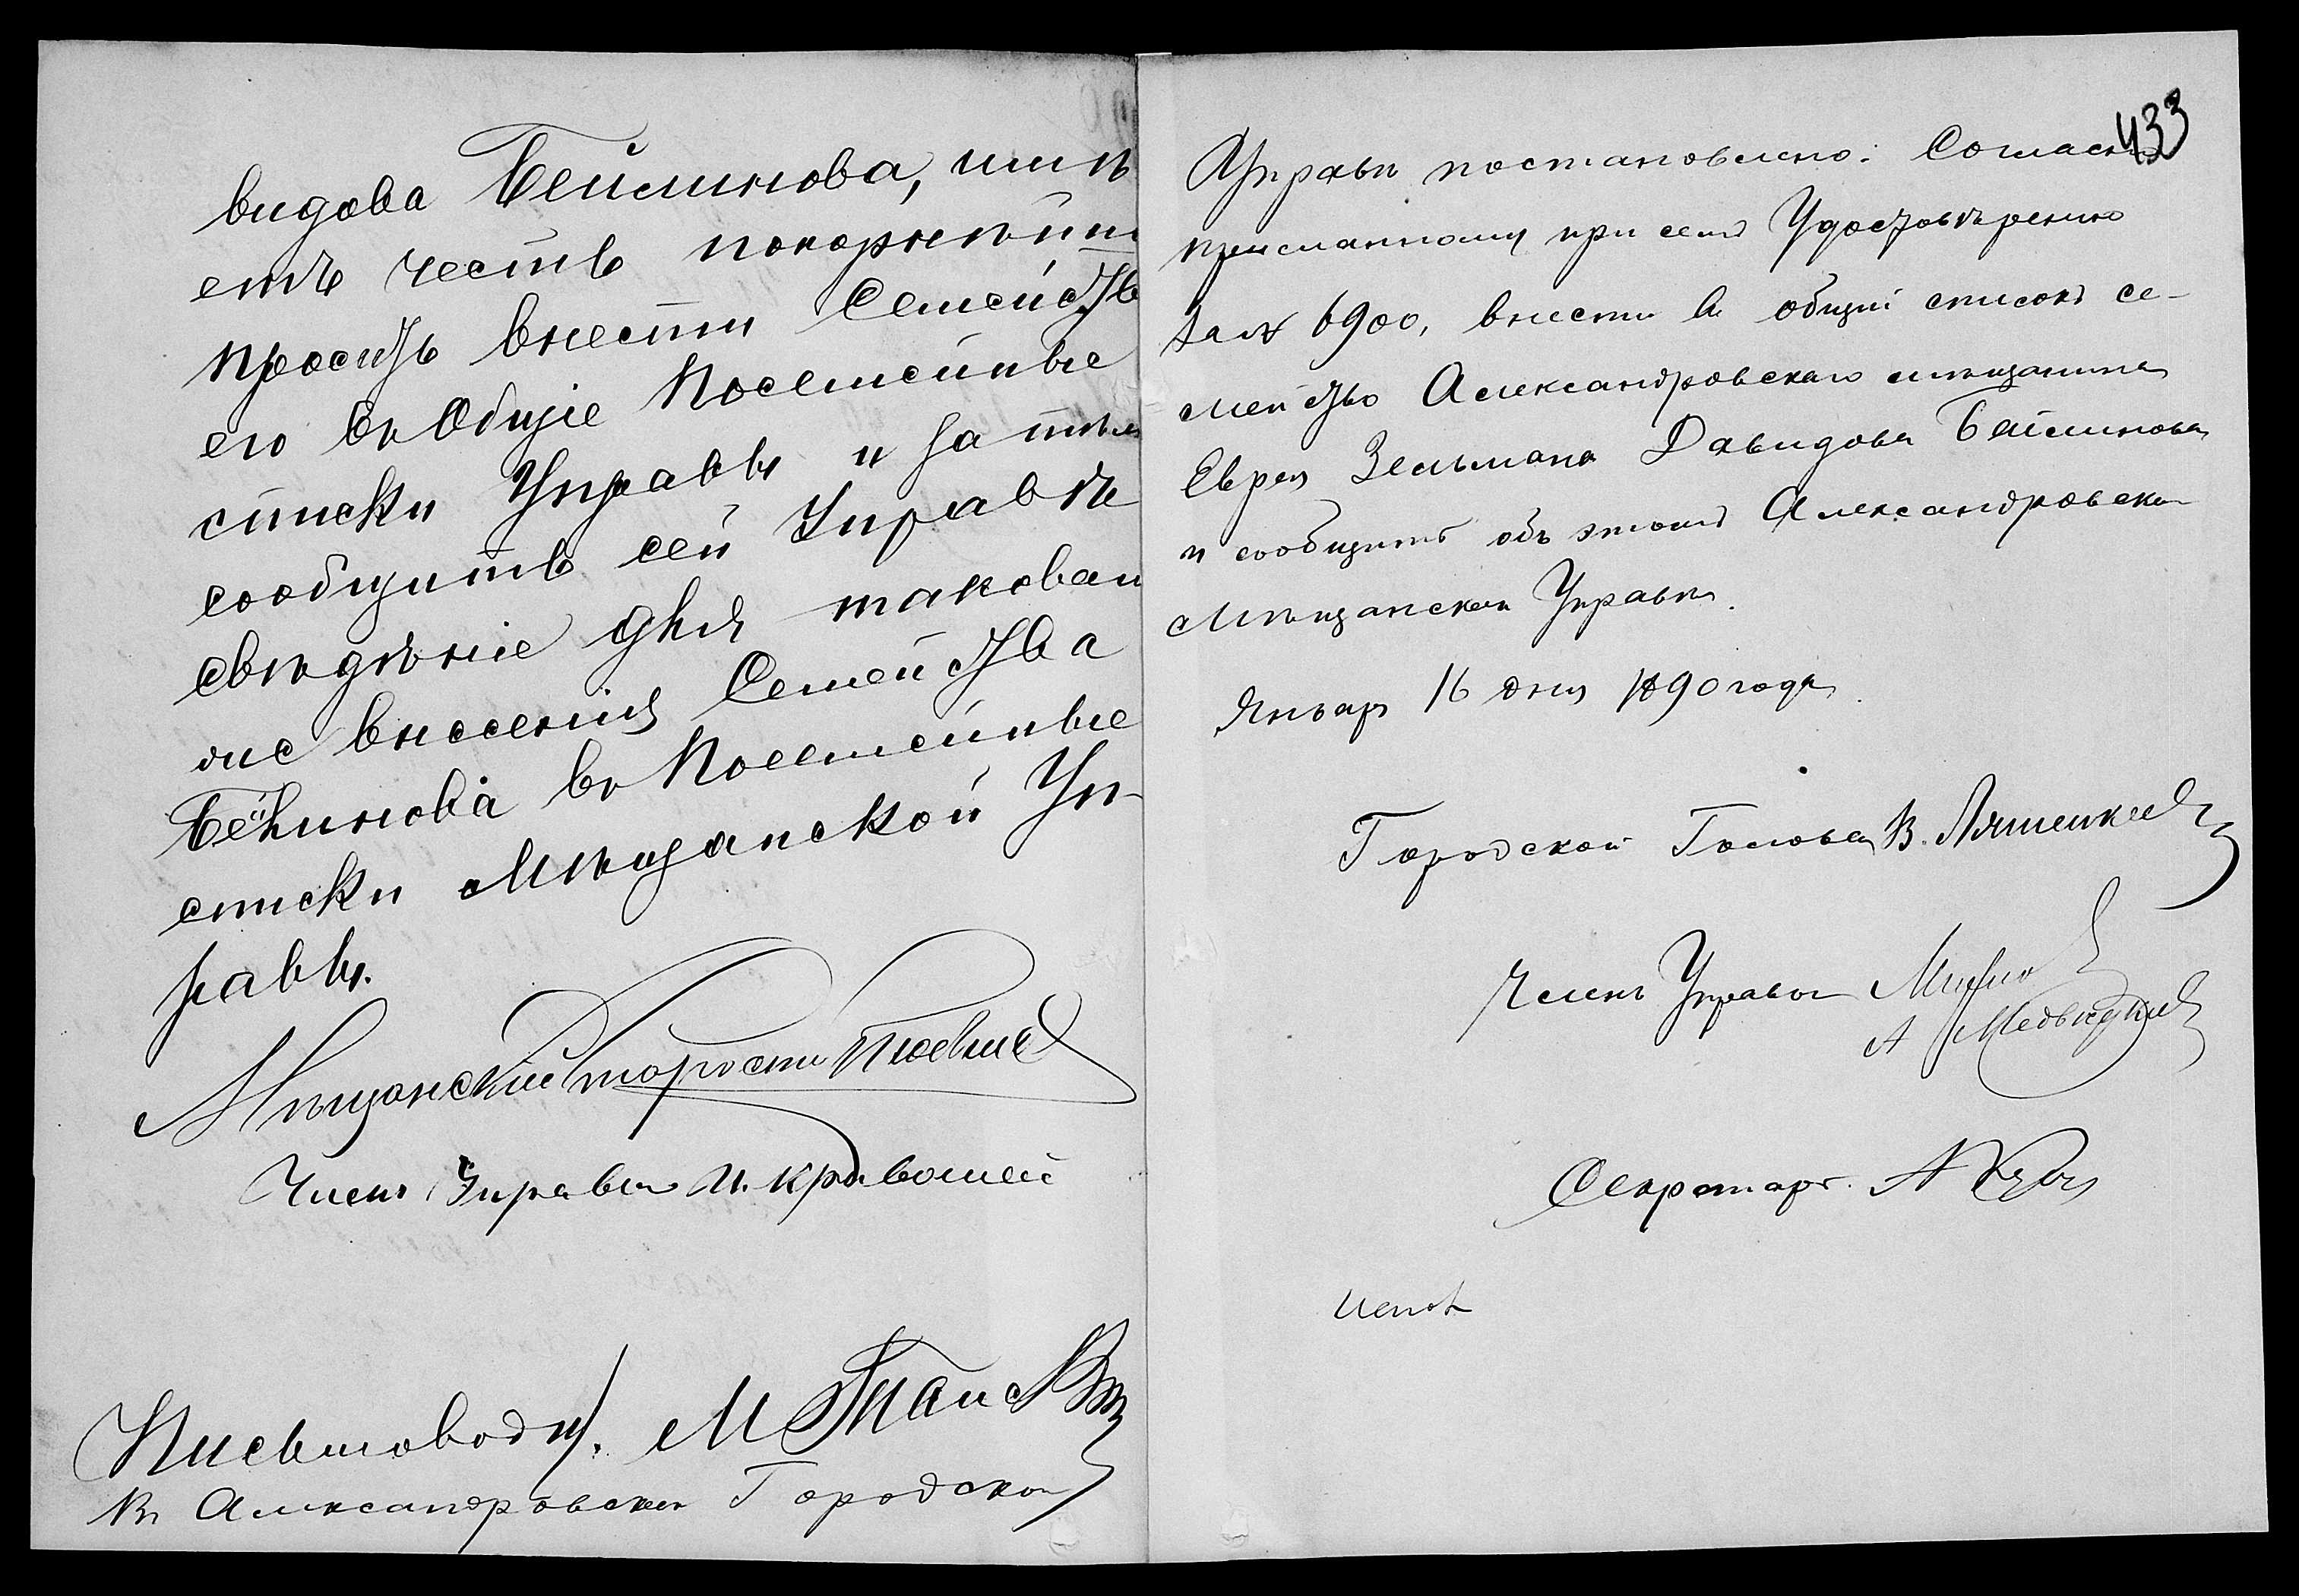 видова Бейлинова, имѣ
етъ честь покорнѣйш
просить внести Семейств
его въ Общіе Посемейные
списки Управы и затѣм
сообщить сей Управѣ
свѣдѣніе для таковаго
же внесенія Семейства
Бейлинова въ Посемейные
списки Мѣщанской Уп-
равы.
Мѣщанскій Староста
Членъ Управы И. Кривошей
Письмовод. М
Въ Александровской Городской
433
Управѣ постановлено: Согласно
присланному при семъ Удостовѣренію
за № 6900, внести въ общій списокъ се-
мейство Александровскаго мѣщанина
Еврея Зельмана Давидова Бейлинова
и сообщить объ этомъ Александровской
Мѣщанской Управѣ.
Январь 16 дня 1890 года.
Городской Голова В. Ляшенко
Члены Управы
А Медвѣдь
Секретарь. А